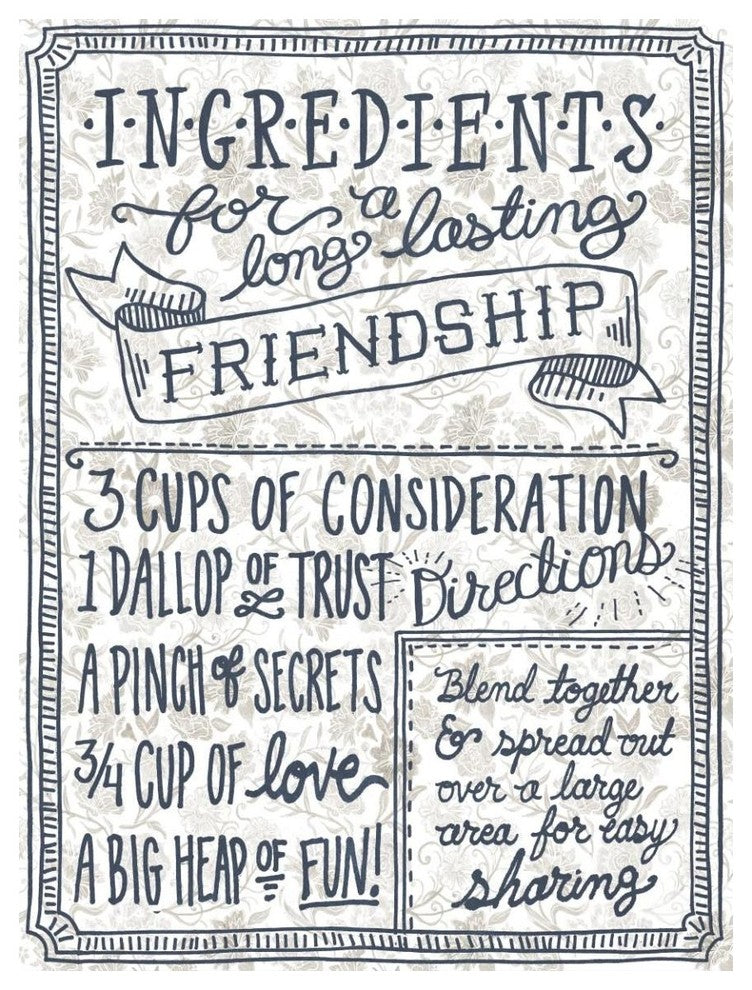 ·I·N·G·R·E·D·I·E·N·T·S·
for a
long lasting
FRIENDSHIP
3 CUPS OF CONSIDERATION
1 DALLOP OF TRUST
A PINCH of SECRETS
3/4 CUP OF love
A BIG HEAP OF FUN!
Directions
Blend together
& spread out
over a large
area for easy
sharing